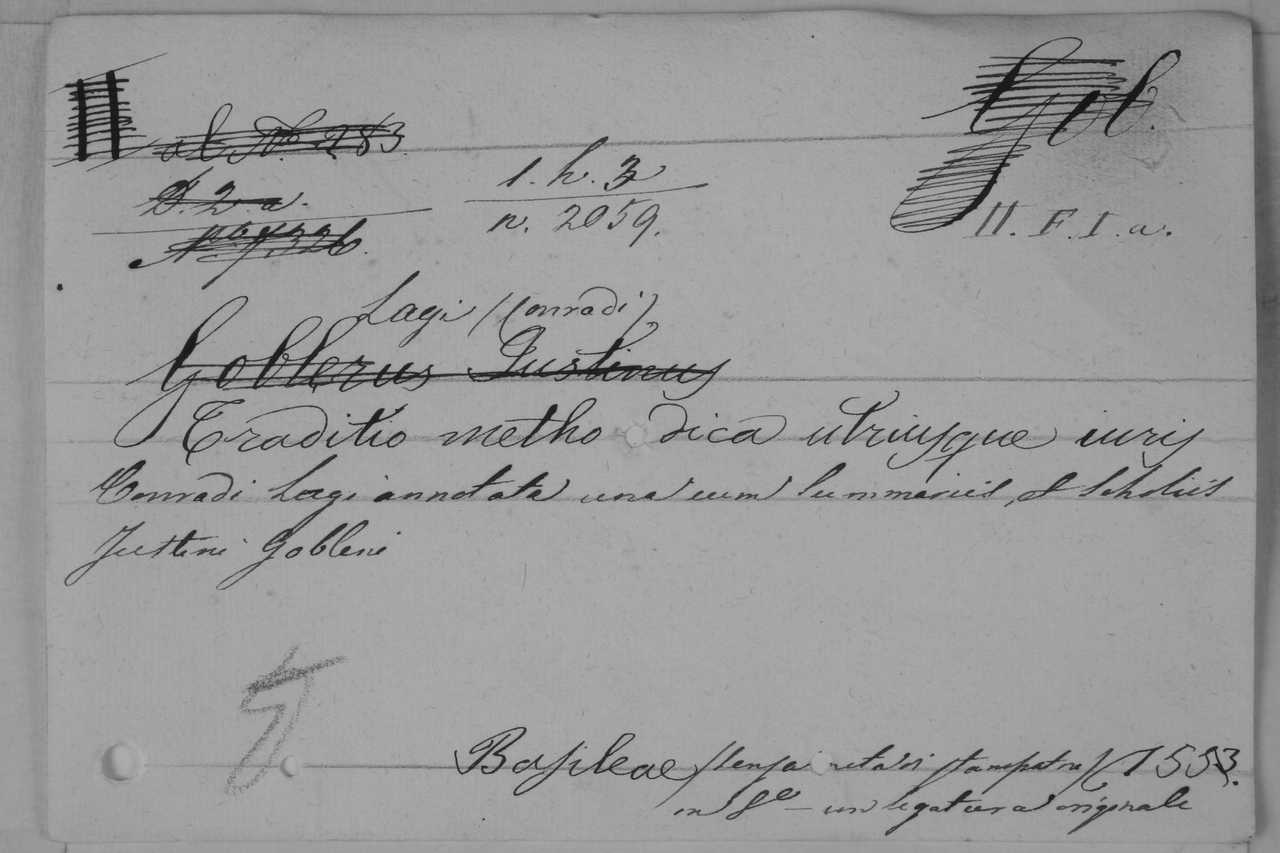 Gob.
N.º 283
D. 2. a.
1. h. 3
n. 2059.
II. F. I. a.
Lagi (Conradi)
Goblerus Justinus
Traditio methodica utriusque iuris
Conradi Lagi annotata una cum summariis, et scholiis
Justini Gobleri
5
Basileae (senza nota di stampatore) 1553.
in 8º - in legatura originale